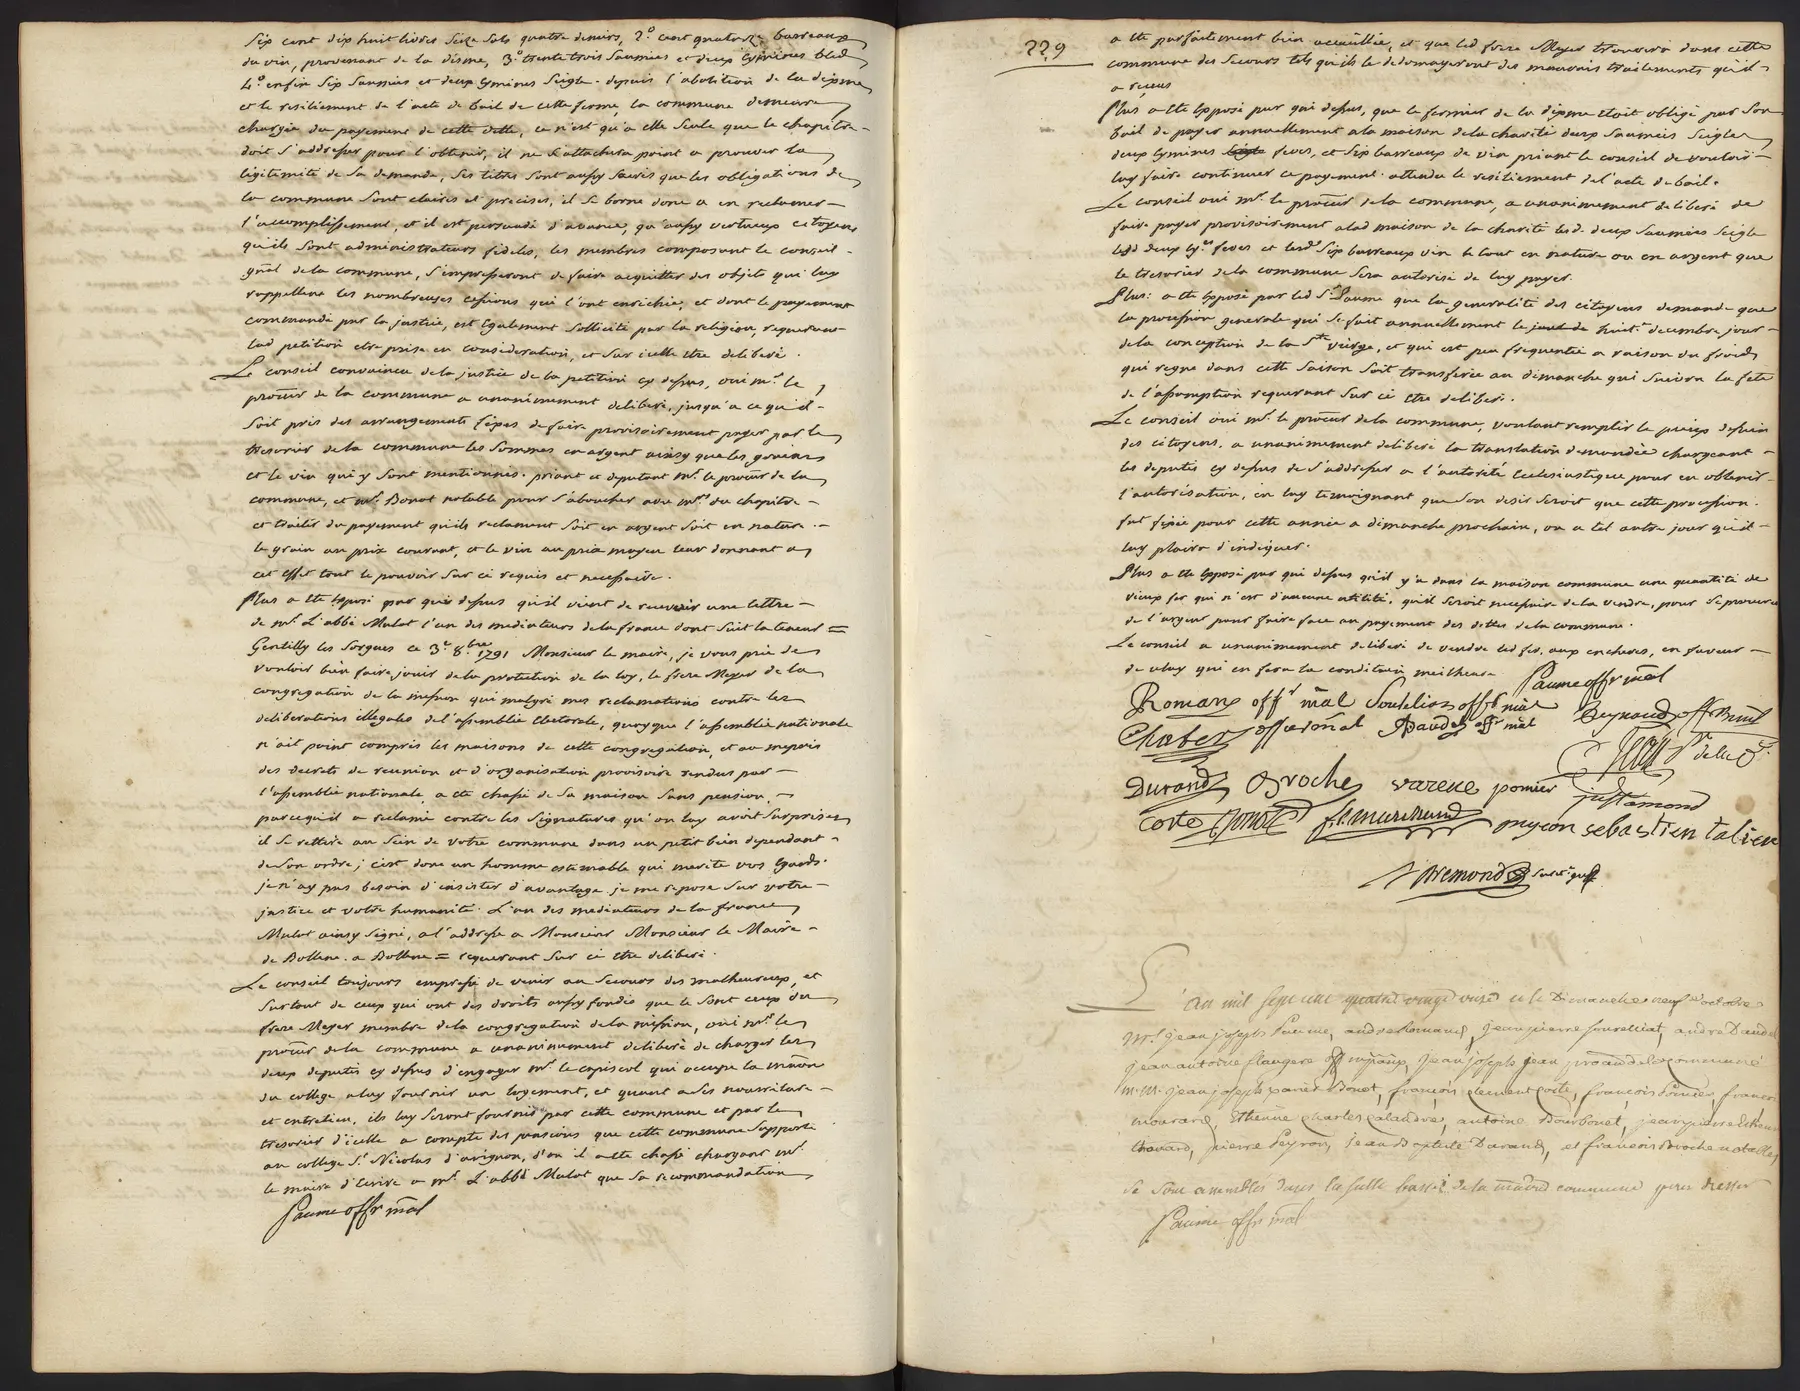 six cent dix huit livres seize sols quatre deniers, 2.° cent quatorze barreaux
du vin, provenant de la disme, 3.° trente trois saumées et deux eymines bled
4.° enfin six saumées et deux eymines seigle. depuis l'abolition de la dixme
et le resiliement de l'acte de bail de cette ferme, la commune demeure
chargée du payement de cette dette, ce n'est qu'a elle seule que le chapitre
doit s'addresser pour l'obtenir, il ne s'attachera point a prouver la
légitimité de sa demande, ses titres sont aussy sacrés que les obligations de
la commune sont claires et précises, il se borne donc a en reclamer
l'accomplissement, et il est persuadé d'avance, qu'aussy vertueux citoyens
qu'ils sont administrateurs fideles, les membres composant le conseil
gñal de la commune, s'empresseront de faire acquitter des objets qui luy
rappellent les nombreuses cessions qui l'ont enrichie, et dont le payement
commandé par la justice, est egalement sollicité par la religion, requerant
lad petition etre prise en consideration, et sur icelle etre deliberé.
Le conseil convaincu de la justice de la petition cy dessus, oui mr. le
procur de la commune a unanimement deliberé, jusqu'a ce qu'il
soit pris des arrangements fixes de faire provisoirement payer par le
tresorier de la commune les sommes en argent ainsy que les grains
et le vin qui y sont mentionnés. priant et deputant mr. le procur de la
commune, et mr. Bonot notable pour s'aboucher avec mrs du chapitre
et traiter du payement qu'ils reclament soit en argent soit en nature.
le grain au prix courant, et le vin au prix moyen leur donnant a
cet effet tout le pouvoir sur ce requis et necessaire.
Plus a été exposé par qui dessus qu'il vient de recevoir une lettre
de mr. L'abbé Mulot l'un des mediateurs de la france dont suit la teneur =
Gentilly les Sorgues ce 3.e 8.bre 1791 Monsieur le maire, je vous prie de
vouloir bien faire jouir de la protection de la loy, le frere Meyer de la
congregation de la mission qui malgré mes reclamations contre les
deliberations illegales de l'assemblée electorale, quoyque l'assemblée nationale
n'ait point compris les maisons de cette congregation, et au mepris
des decrets de reunion et d'organisation provisoire rendus par
l'assemblée nationale, a été chassé de sa maison sans pension,
parcequ'il a reclamé contre les signatures qu'on luy avoit surprises
il se retire au sein de votre commune dans un petit bien dependant
de son ordre; c'est donc un homme estimable qui merite vos egards.
je n'ay pas besoin d'insister d'avantage. je me repose sur votre
justice et votre humanité. L'un des mediateurs de la france
Mulot ainsy signé, a l'addresse a Monsieur Monsieur le Maire
de Bollene. a Bollene = requerant sur ce etre deliberé.
Le conseil toujours empressé de venir au secours des malheureux, et
surtout de ceux qui ont des droits aussy fondés que le sont ceux du
frere Meyer membre de la congregation de la mission, oui mr. le
procur de la commune a unanimement deliberé de charger les
deux deputés cy dessus d'engager mr. le capiscol qui occupe la maison
du college a luy fournir un logement, et quant a ses nourriture
et entretien, ils luy seront fournis par cette commune et par le
tresorier d'icelle a compte des pensions que cette commune supporte
au college St. Nicolas d'avignon, d'ou il a été chassé chargeant mr.
le maire d'ecrire a mr. L'abbé Mulot que sa recommandation
Saume offr mãl
229
a été parfaitement bien accueillie, et que led frere Meyer trouvera dans cette
commune des secours tels qu'ils le dedomageront des mauvais traitements qu'il
a reçus
Plus a été exposé par qui dessus, que le fermier de la dixme etoit obligé par son
bail de payer annuellement a la maison de la charité deux saumées seigle
deux eymines feves, et six barreaux de vin priant le conseil de vouloir
luy faire continuer ce payement. attendu le resiliement de l'acte de bail.
Le conseil oui mr. le procur de la commune, a unanimement deliberé de
faire payer provisoirement a lad maison de la charité lesd. deux saumées seigle
lesd deux feves et lesd six barreaux vin le tout en nature ou en argent que
le tresorier de la commune sera autorisé de luy payer.
Plus: a été exposé par led Sr. Saume que la generalité des citoyens demande que
la procession generale qui se fait annuellement le huit decembre jour
de la conception de la Ste vierge, et qui est peu frequentée a raison du froid
qui regne dans cette saison soit transferée au dimanche qui suivra la fete
de l'assomption requerant sur ce etre deliberé.
Le conseil oui mr. le procur de la commune, voulant remplir le pieux dessein
des citoyens, a unanimement deliberé la translation demandée chargeant
les deputés cy dessus de s'addresser a l'autorité ecclesiastique pour en obtenir
l'autorisation, en luy temoignant que son desir seroit que cette procession
fut fixée pour cette année a dimanche prochain, ou a tel autre jour qu'il
luy plaira d'indiquer.
Plus a été exposé par qui dessus qu'il y'a dans la maison commune une quantité de
vieux fer qui n'est d'aucune utilité, qu'il seroit necessaire de la vendre, pour se procurer
de l'argent pour faire face au payement des dettes de la commune.
Le conseil a unanimement deliberé de vendre led fer, aux encheres, en faveur
de celuy qui en fera la condition meilheure
Saume offr mãl
Romans offr mãl Soulelias offr mãl
Chabert off Daudé offr mãl Reynaud off
Durand Broche vareue pomier justamond
Coste f. le marchand peyron sebastien talien
Aremond
L'an mil sept cent quatre vingt onze et le Dimanche neuf d'octobre
Mrs. jean joseph Saume, andré Romans, jean pierre andré Daudel
jean antoine flaugere off jean joseph jean procur de la commune
m.m. jean joseph Bonot, françois clement coste, françois pomier, francois
mourard, Etienne charles calendre, antoine Bourbonet, jean pierre
pierre Peyron, jean Baptiste Durand, et françois Broche notables
se sont assemblés dans la salle basse de la maison commune pour dresser
Saume offr mãl